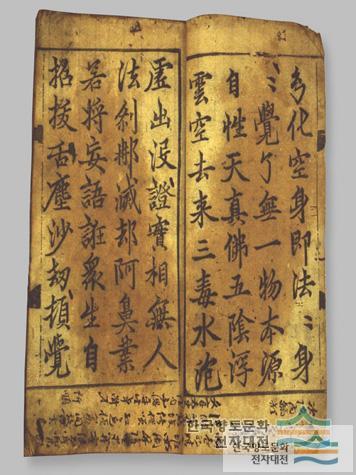 幻化空身即法〻身
〻覺了無一物本源
自性天真佛五陰浮
雲空去来三毒水泡
虛出没證實相無人
法刹那滅却阿鼻業
若將妄語誑衆生自
招拔舌塵沙劫頓覺
한국향토문화
전자대전
한국향토문화
전자대전